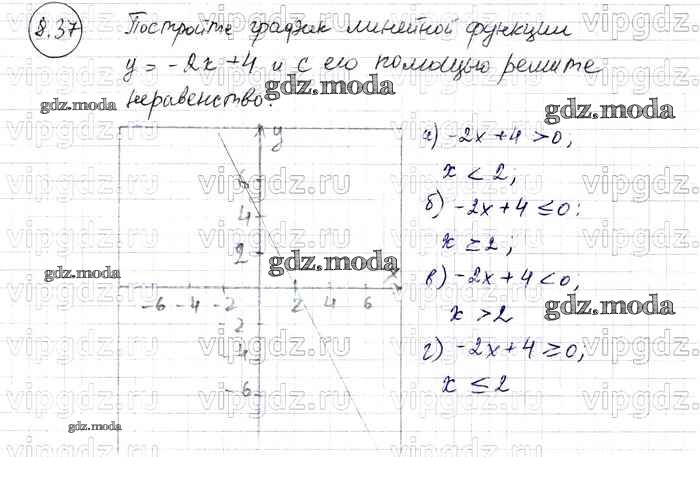 8.37 Постройте график линейной функции
y = -2x+4 и с его помощью решите
неравенство:
а) -2x+4 > 0;
x < 2;
б) -2x+4 ≤ 0:
x ≥ 2;
в) -2x+4 < 0;
x > 2
г) -2x+4 ≥ 0;
x ≤ 2
y
6
4
2
-6 -4 -2 2 4 6
2
4
-6
x
gdz.moda
gdz.moda
gdz.moda
gdz.moda
gdz.moda
gdz.moda
gdz.moda
vipgdz.ru